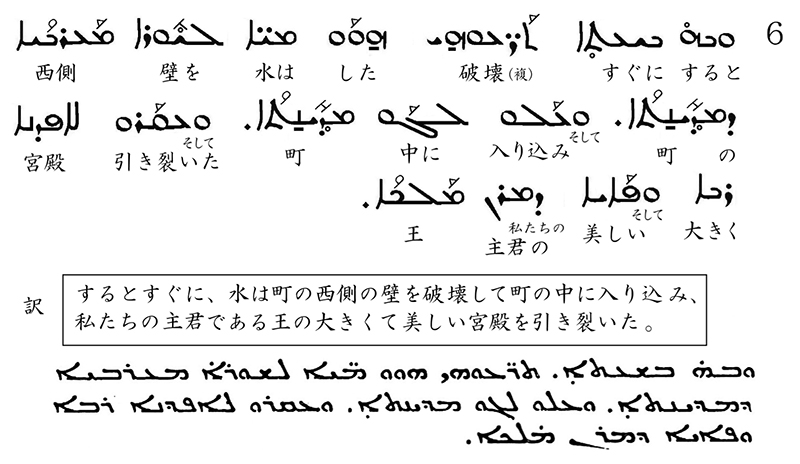 6 ܘܒܗ̇ ܒܫܥܬܐ ܬܪ̈ܥܘܗܝ ܗܘܘ ܡ̈ܝܐ ܠܫܘܪܐ ܡܥܪܒܝܐ
西側 壁を 水は した 破壊(複) すぐに すると
ܕܡܕܝܢܬܐ. ܘܥܠܘ ܠܓܘ ܡܕܝܢܬܐ. ܘܥܩܪܘ ܠܐܦܕܢܐ
宮殿 そして引き裂いた 町 中に そして入り込み 町 の
ܪܒܐ ܘܦܐܝܐ ܕܡܪܢ ܡܠܟܐ.
王 私たちの主君の そして美しい 大きく
訳 するとすぐに、水は町の西側の壁を破壊して町の中に入り込み、
私たちの主君である王の大きくて美しい宮殿を引き裂いた。
ܘܒܗ̇ ܒܫܥܬܐ. ܬܪ̈ܥܘܗܝ ܗܘܘ ܡ̈ܝܐ ܠܫܘܪܐ ܡܥܪܒܝܐ
ܕܡܕܝܢܬܐ. ܘܥܠܘ ܠܓܘ ܡܕܝܢܬܐ. ܘܥܩܪܘ ܠܐܦܕܢܐ ܪܒܐ
ܘܦܐܝܐ ܕܡܪܢ ܡܠܟܐ.